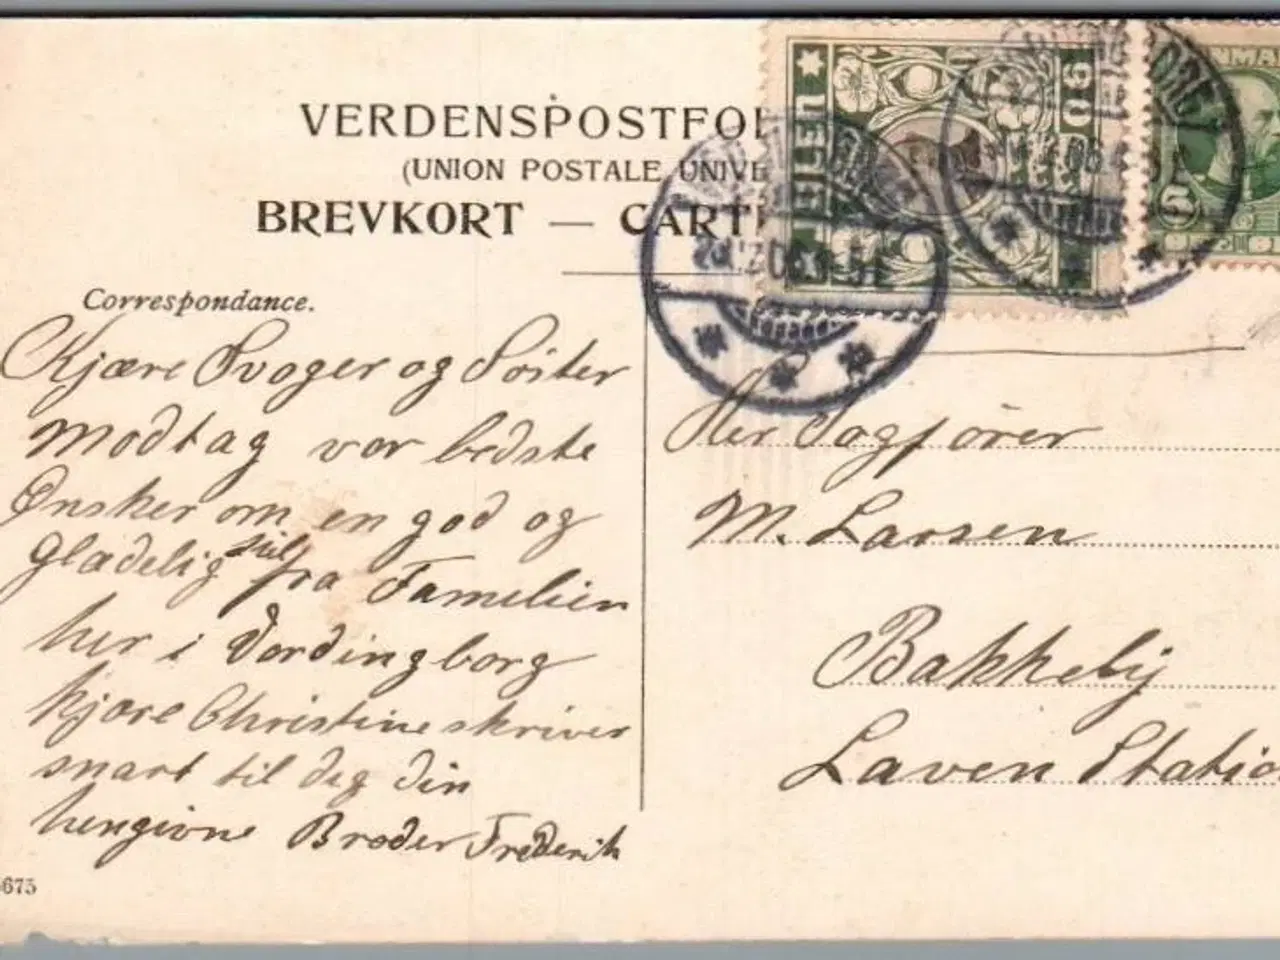 VERDENSPOSTFO
(UNION POSTALE UNIVE
BREVKORT — CART
JULEN
06
DANMA
5
Correspondance.
Kjære Svoger og Søster
Modtag vor bedste
Ønsker om en god og
Glædelig Jul fra Familien
her i Vordingborg
kjære Christine skriver
snart til dig din
hengivne Broder Frederik
Her Sogfører
M. Larsen
Bakkeby
Laven Statio
675